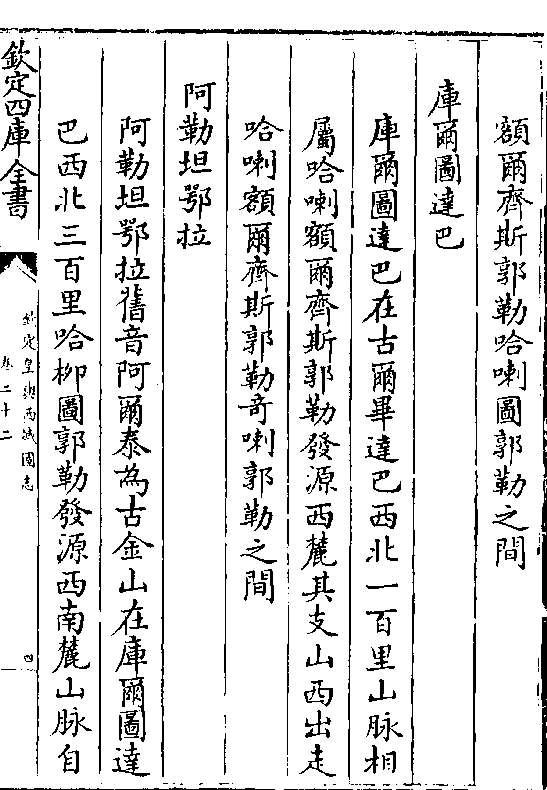 額爾齊斯郭勒哈喇圖郭勒之間
庫爾圖達巴
庫爾圖達巴在古爾畢達巴西北一百里山脈相
屬哈喇額爾齊斯郭勒發源西麓其支山西出走
哈喇額爾齊斯郭勒竒喇郭勒之間
阿勒坦鄂拉
阿勒坦鄂拉舊音阿爾泰為古金山在庫爾圖達
巴西北三百里哈柳圖郭勒發源西南麓山脈自
欽定四庫全書
欽定皇輿西域圖志
卷二十二
四